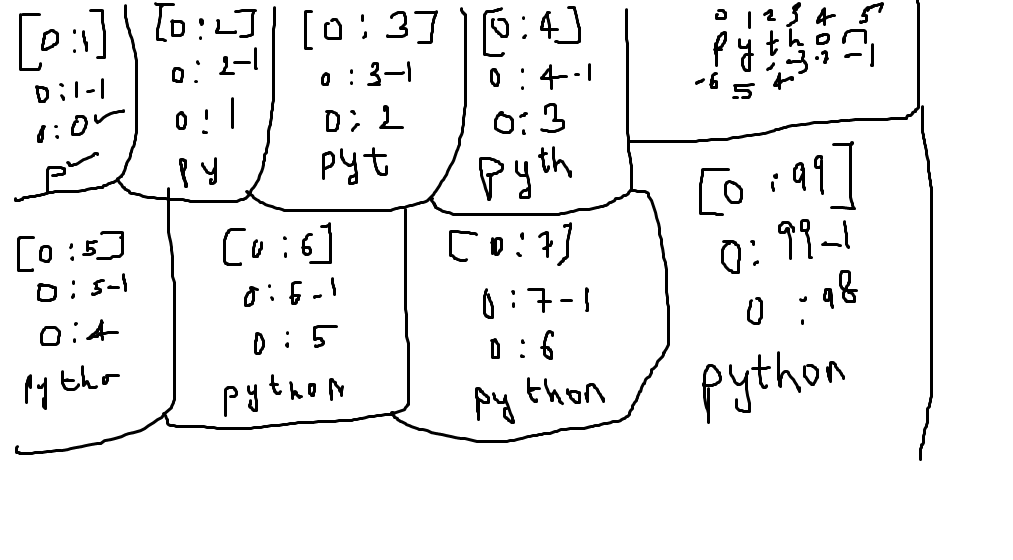 [0:1]
0:1-1
0:0
p
[0:2]
0:2-1
0:1
py
[0:3]
0:3-1
0:2
pyt
[0:4]
0:4-1
0:3
pyth
0 1 2 3 4 5
python
-6 5 4 -3 -2 -1
[0:5]
0:5-1
0:4
pytho
[0:6]
0:6-1
0:5
python
[0:7]
0:7-1
0:6
python
[0:99]
0:99-1
0:98
python